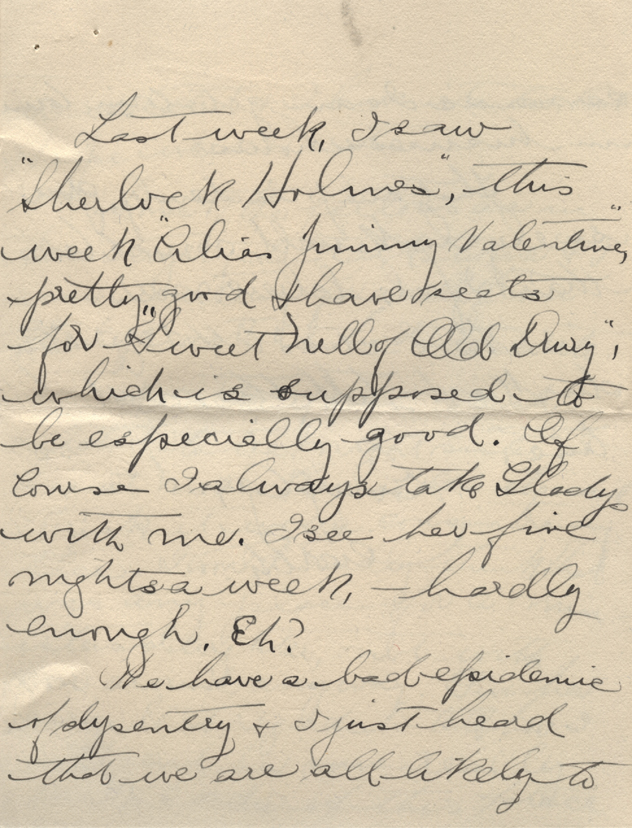 Last week, I saw
"Sherlock Holmes", this
week "Alias Jimmy Valentine,"
pretty good & have seats
for "Sweet Nell of Old Drury",
which is supposed to
be especially good. Of
course I always take Gladys
with me. I see her five
nights a week, - hardly
enough, Eh?
We have a bad epidemic
of dysentry & I just heard
that we are all likely to